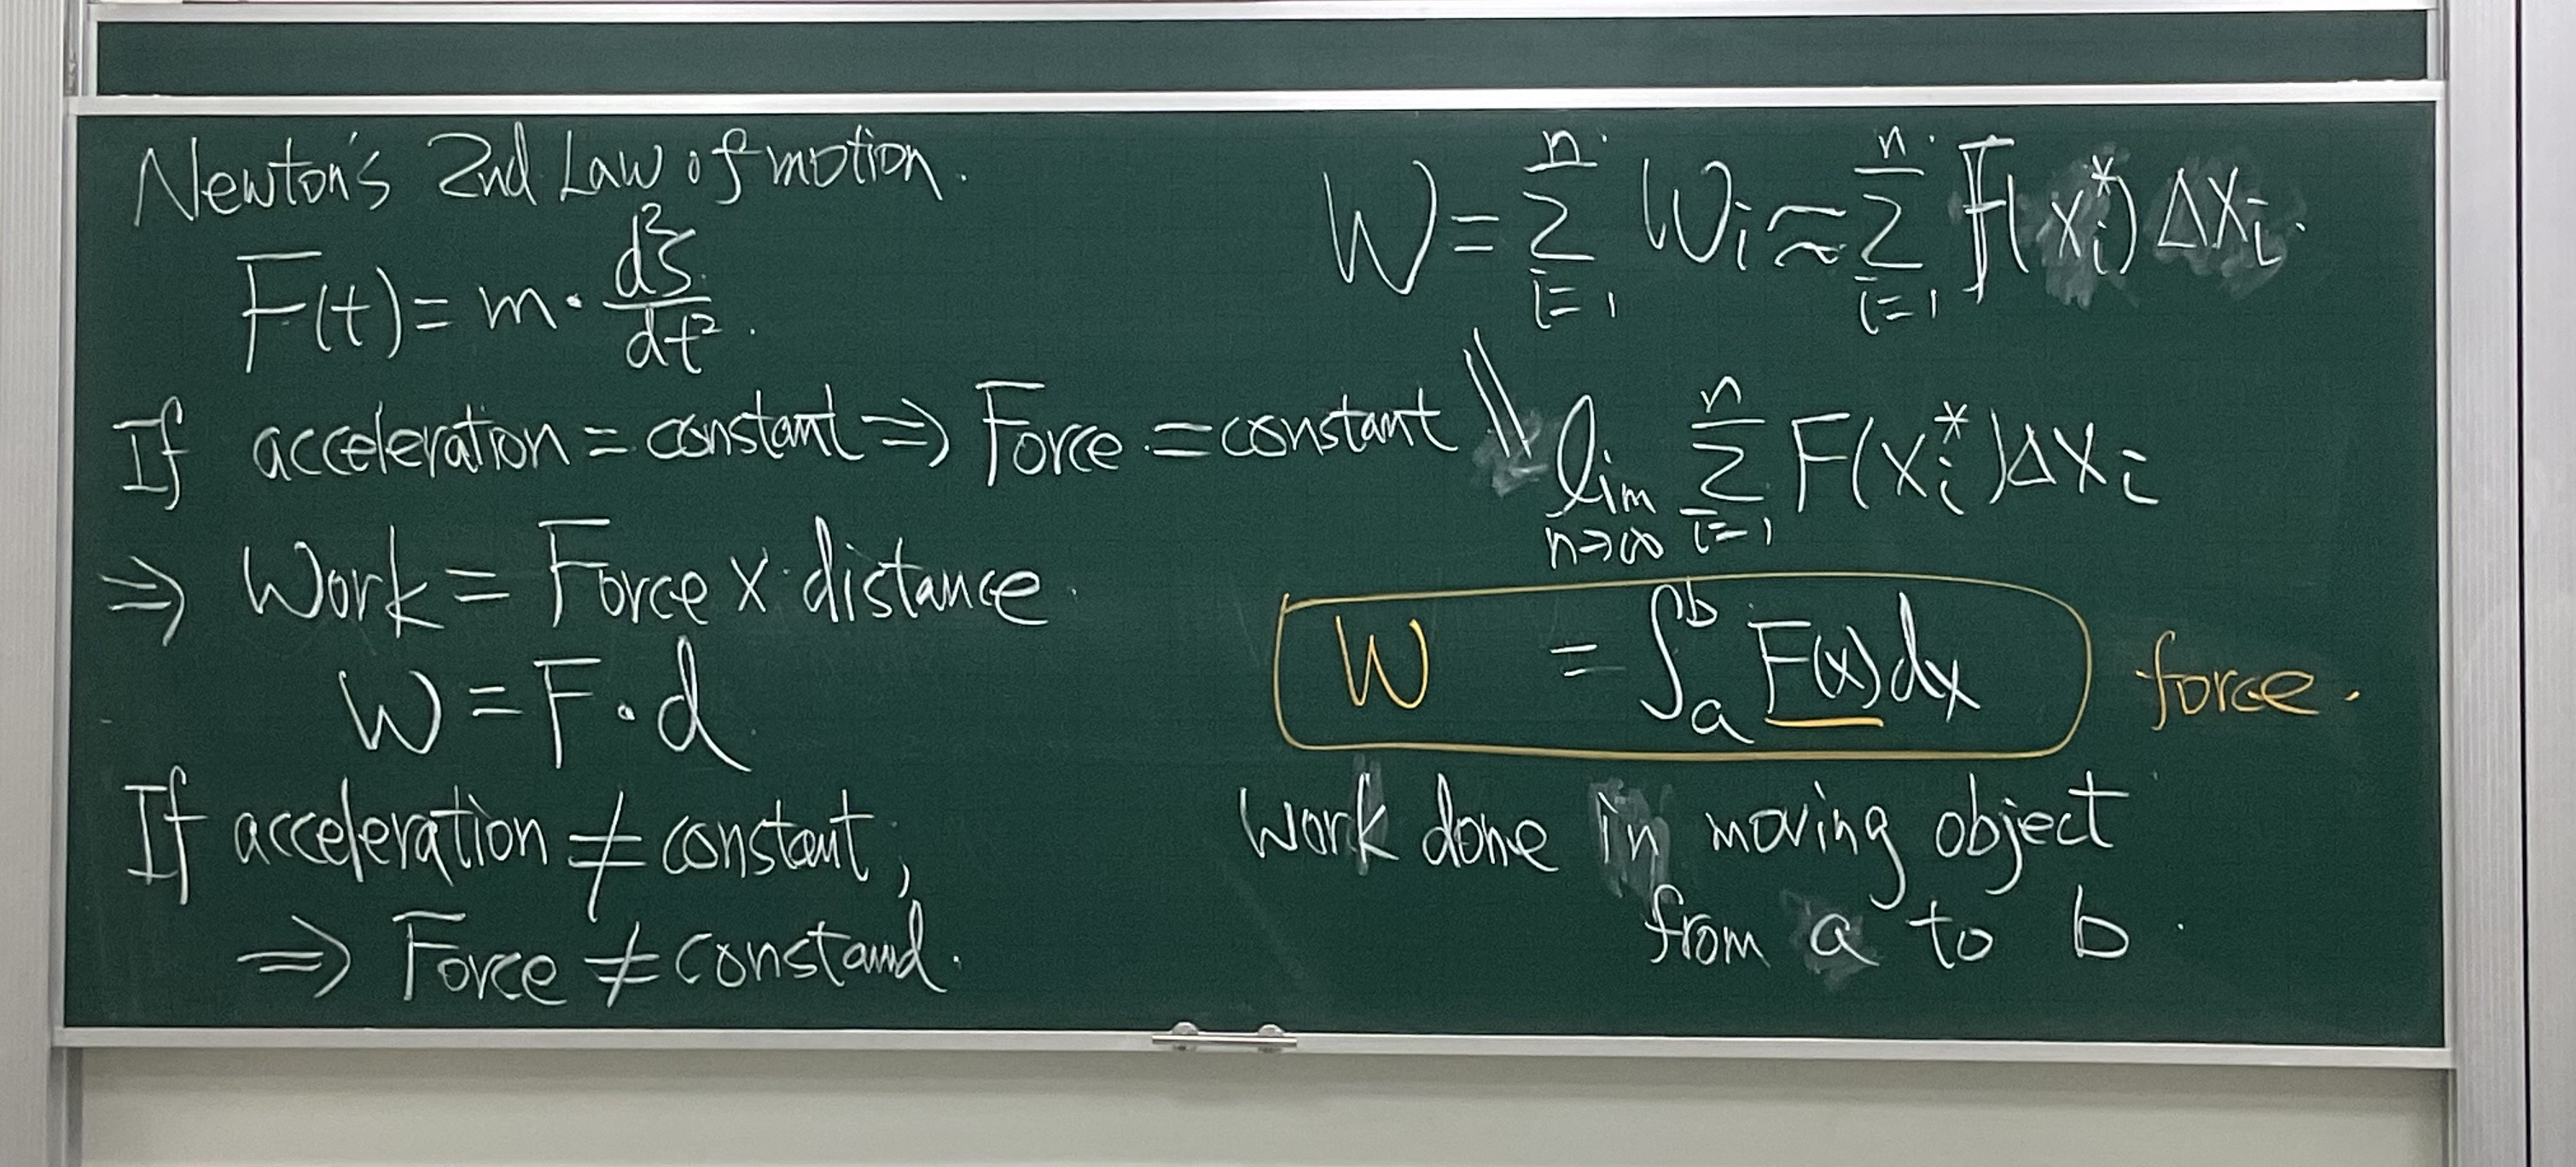 Newton's 2nd Law of motion.
F(t) = m · d²s/dt².
If acceleration = constant ⇒ Force = constant
⇒ Work = Force x distance.
W = F · d
If acceleration ≠ constant,
⇒ Force ≠ constand.
W = ∑_{i=1}^{n} Wi ≈ ∑_{i=1}^{n} F(x_i^*) Δx_i.
|| lim_{n→∞} ∑_{i=1}^{n} F(x_i^*) Δx_i
W = ∫_a^b F(x) dx force.
Work done in moving object
from a to b.